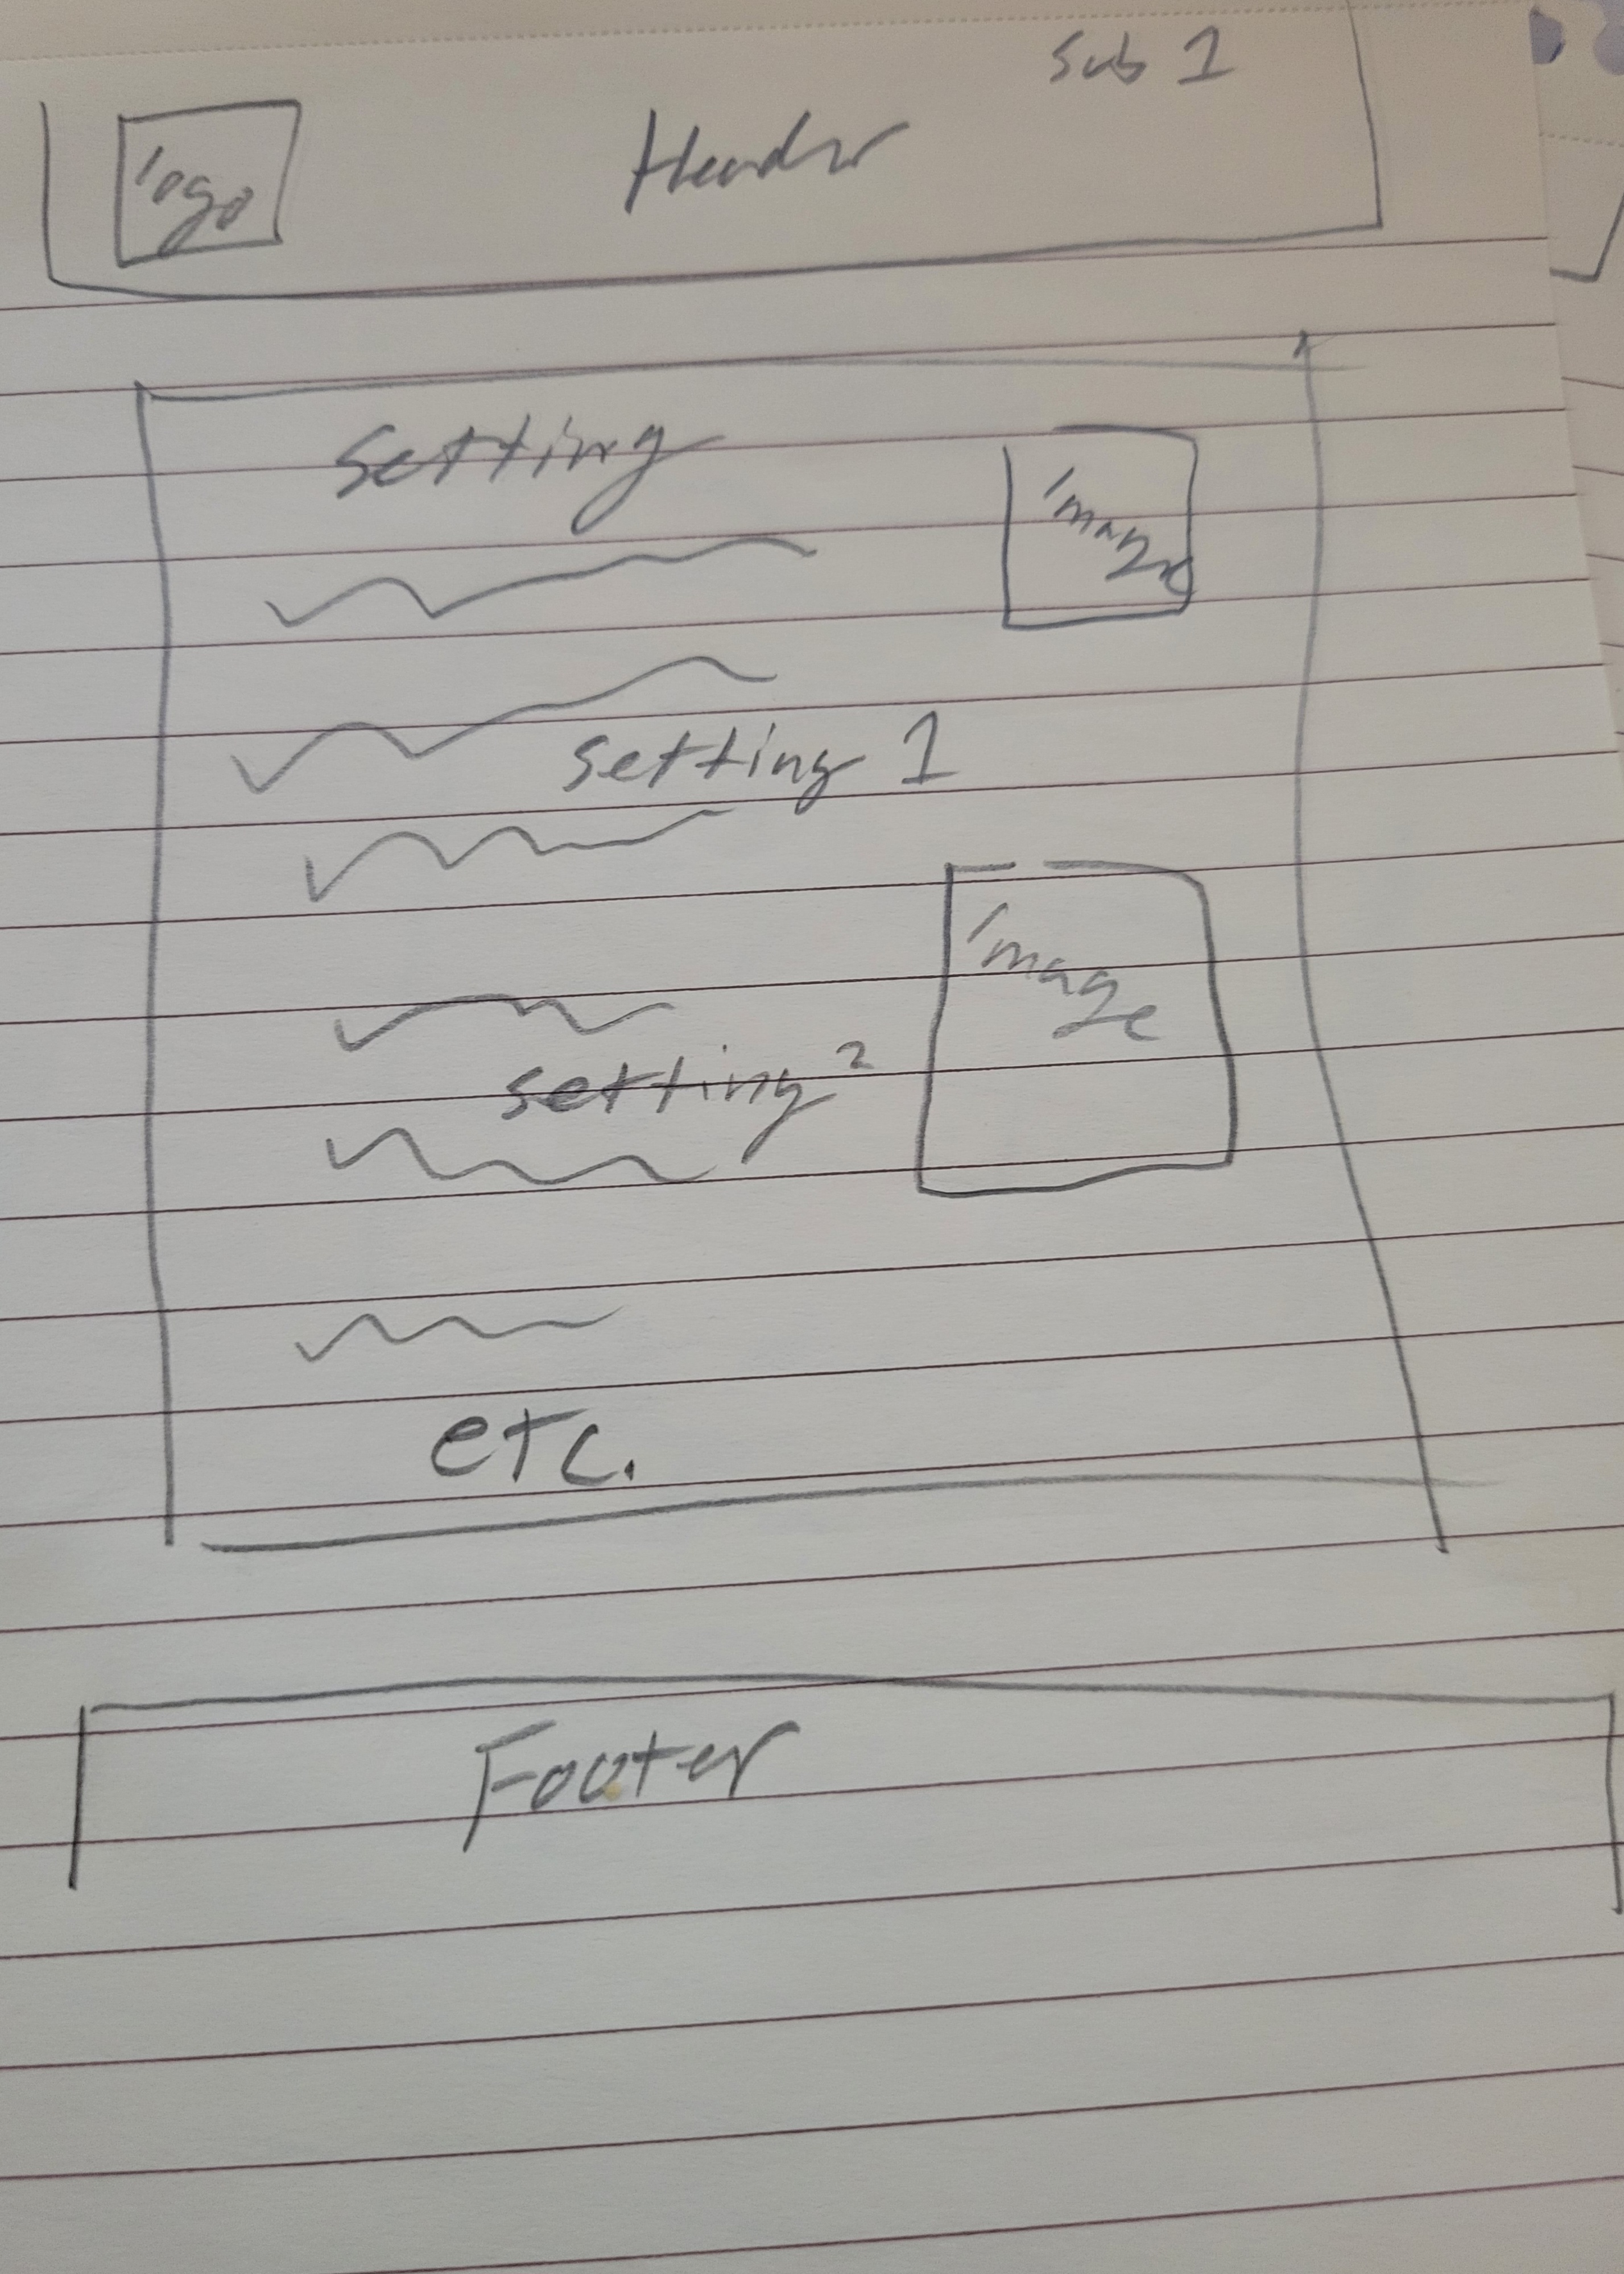 Sub 1
logo
Header
setting
image
setting 1
image
setting 2
etc.
Footer